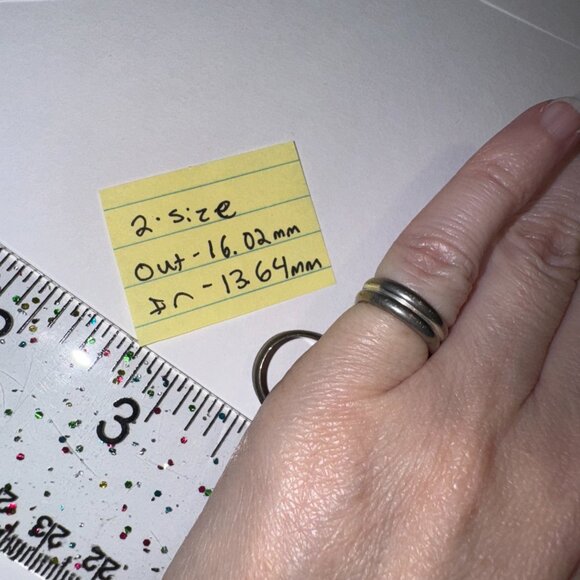 2. size
Out - 16.02mm
In - 13.64mm
3
24
23
22